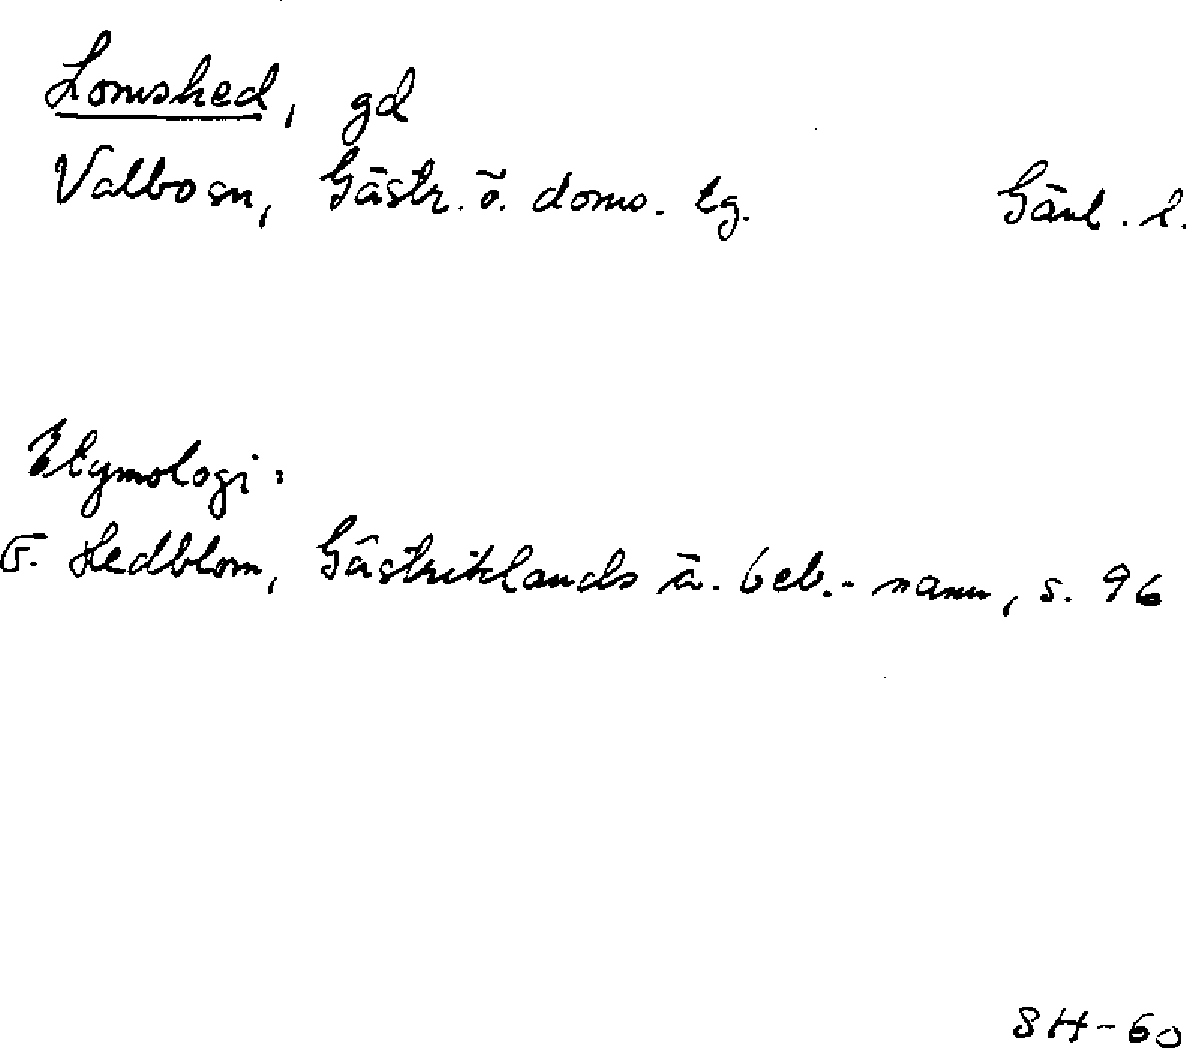 Lomshed, gd
Valbo sn, Gästr. ö. doms. tg. Gävl. l.
Etymologi:
F. Hedblom, Gästriklands ä. beb.-namn, s. 96
SH-60